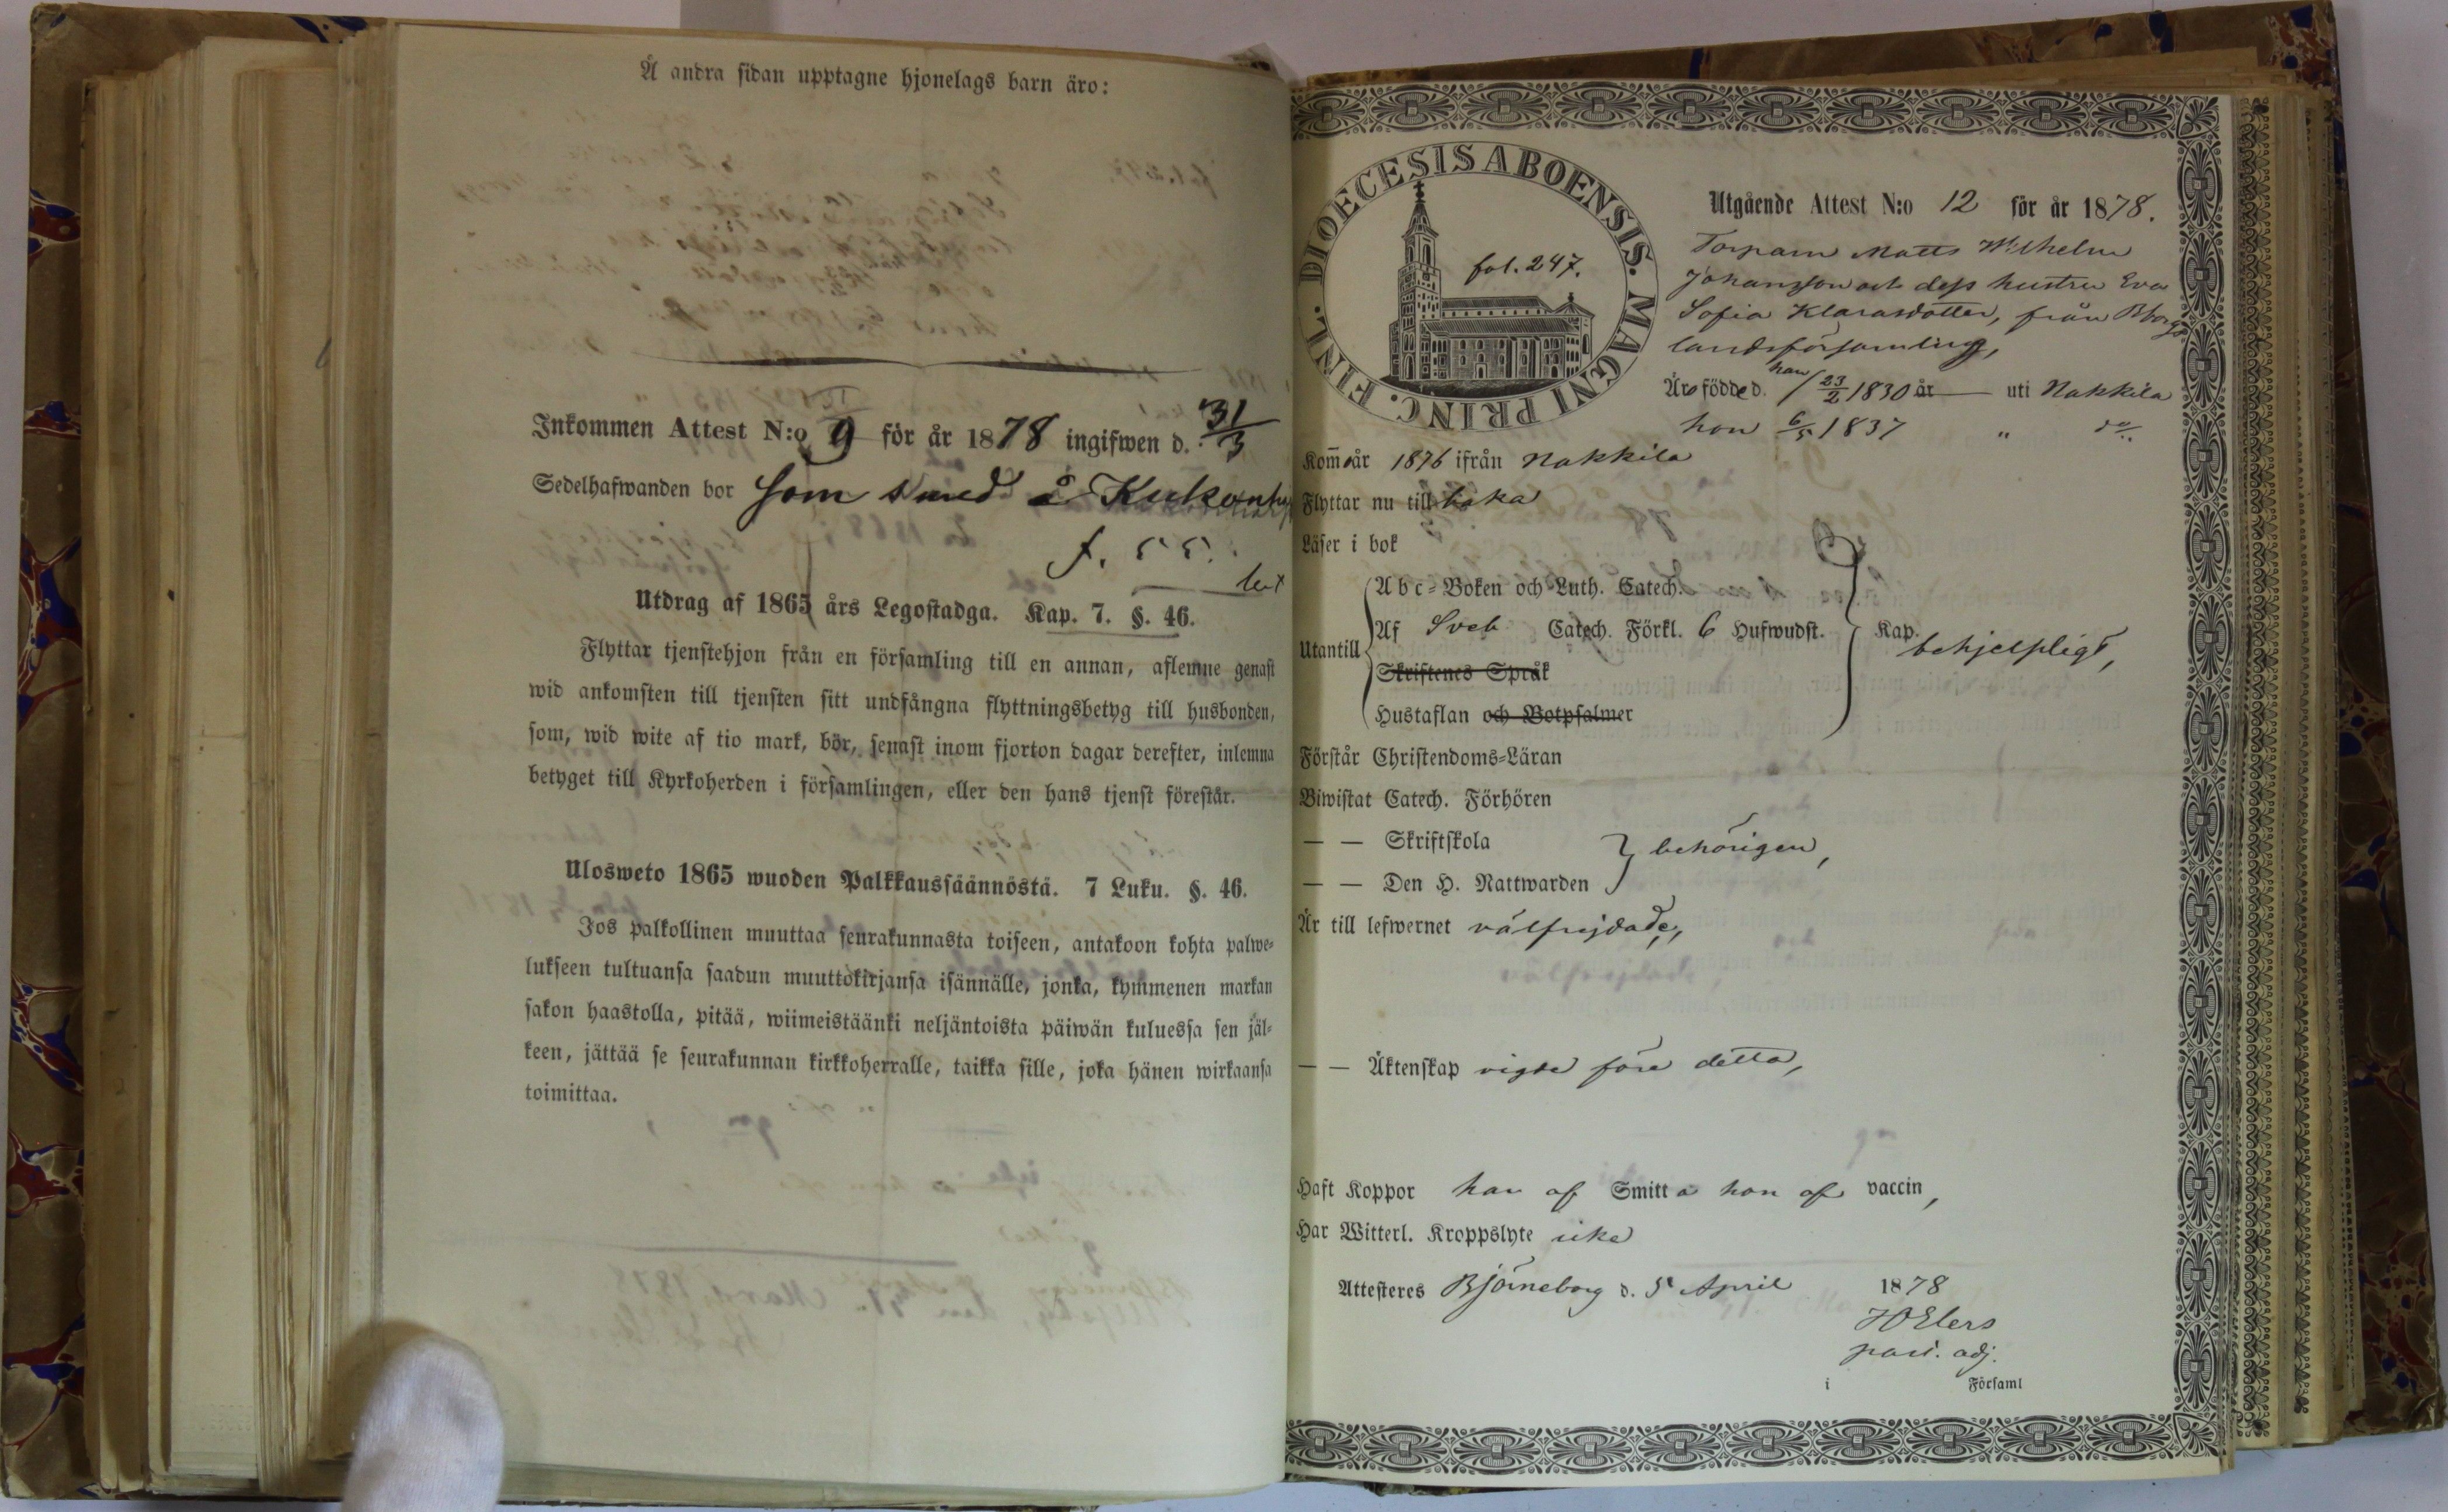 Å andra sidan upptagne hjonelags barn äro:
Inkommen Attest N:o 9 för år 1878 ingifwen d. 31/3
Sedelhafwanden bor som smed å
f. 55.
Utdrag af 1865 års Legostadga. Kap. 7. §. 46.
Flyttar tjenstehjon från en församling till en annan, aflemne genast
wid ankomsten till tjensten sitt undfångna flyttningsbetyg till husbonden,
som, wid wite af tio mark, bör, senast inom fjorton dagar derefter, inlemna
betyget till Kyrkoherden i församlingen, eller den hans tjenst förestår.
Ulosweto 1865 wuoden Palkkaussäännöstä. 7 Luku. §. 46.
Jos palkollinen muuttaa seurakunnasta toiseen, antakoon kohta palwe-
lukseen tultuansa saadun muuttokirjansa isännälle, jonka, kymmenen markan
sakon haastolla, pitää, wiimeistäänki neljäntoista päiwän kuluessa sen jäl-
keen, jättää se seurakunnan kirkkoherralle, taikka sille, joka hänen wirkaansa
toimittaa.
DIOECESIS ABOENSIS. MAGNI PRINC. FINL.
fol. 247.
Utgående Attest N:o 12 för år 1878.
Torparn Matts Wilhelm
Johansson och dess hustru Eva
Sofia Klarasdotter, från Bborgs
landsförsamling,
Äro födde d. han 23/2 1830 år uti Nakkila
hon 6/5 1837 " do
Kom̄ år 1876 ifrån Nakkila
Flyttar nu till baka
Läser i bok
Abc-Boken och Luth. Catech.
Utantill Af Sveb Catech. Förkl. 6 Hufwudst. Kap. behjelpligt,
Skriftenes Språk
Hustaflan och Botpsalmer
Förstår Christendoms-Läran
Biwistat Catech. Förhören
— — Skriftskola
behörigen,
— — Den H. Nattwarden
Är till lefwernet välfrejdade,
— — Äktenskap vigde före detta,
Haft Koppor han af Smitta hon af vaccin,
Har Witterl. Kroppslyte icke
Attesteres Björneborg d. 5 April 1878
Elers
past. adj.
i Församl